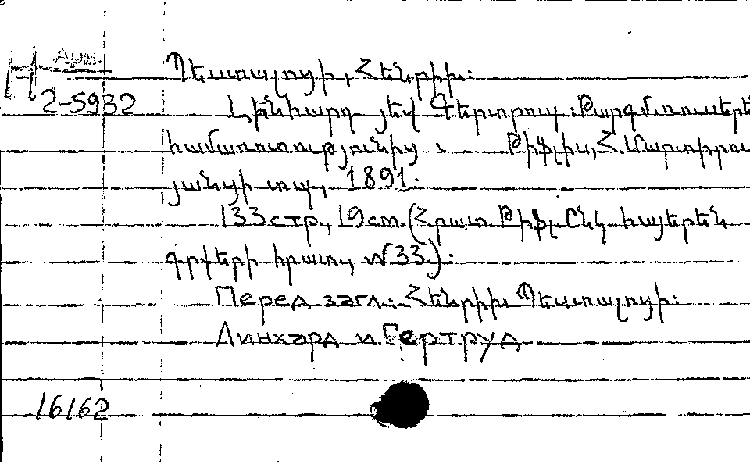 Арм.
Պեստալոցի, Հենրիխ:
2-5932
Լինհարդ յեվ Գերտրուդ: Թարգմ. ռուսերեն
համառոտությունից: Թիֆլիս, Հ. Մարտիրոս
յանցի տպ., 1891.
133 стр., 19 см. (Հրատ. Թիֆլ. Ընկ. հայերեն
գրքերի հրատ., №33.):
Перед загл.: Հենրիխ Պեստալոցի:
Линхард и Гертруд
16162